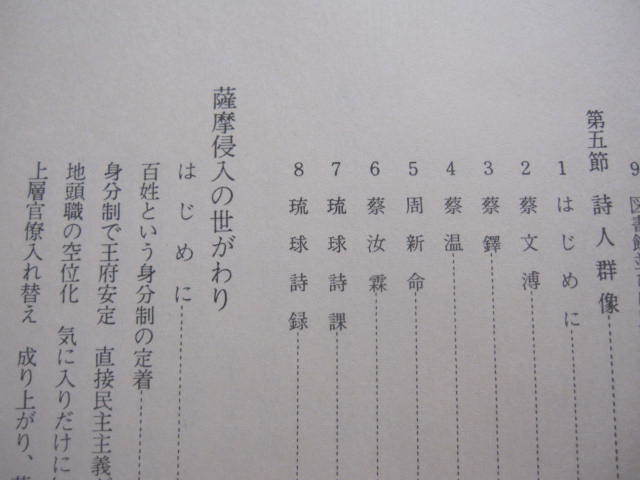 9 図書館
第五節 詩人群像
1 はじめに
2 蔡文溥
3 蔡鐸
4 蔡温
5 周新命
6 蔡汝霖
7 琉球詩課
8 琉球詩録
薩摩侵入の世がわり
はじめに
百姓という身分制の定着
身分制で王府安定 直接民主主義
地頭職の空位化 気に入りだけに
上層官僚入れ替え 成り上がり、